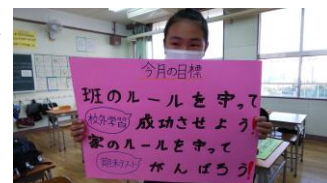 今月の目標
班のルールを守って
校外学習 成功させよう!
家のルールを守って
期末テスト がんばろう!